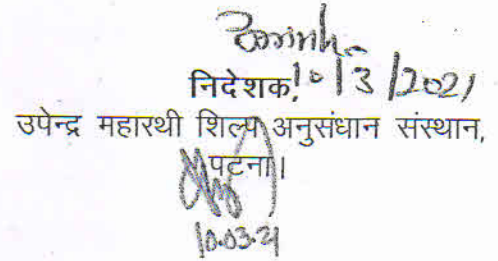 निदेशक, 10/3/2021
उपेन्द्र महारथी शिल्प अनुसंधान संस्थान,
पटना।
10.03.21